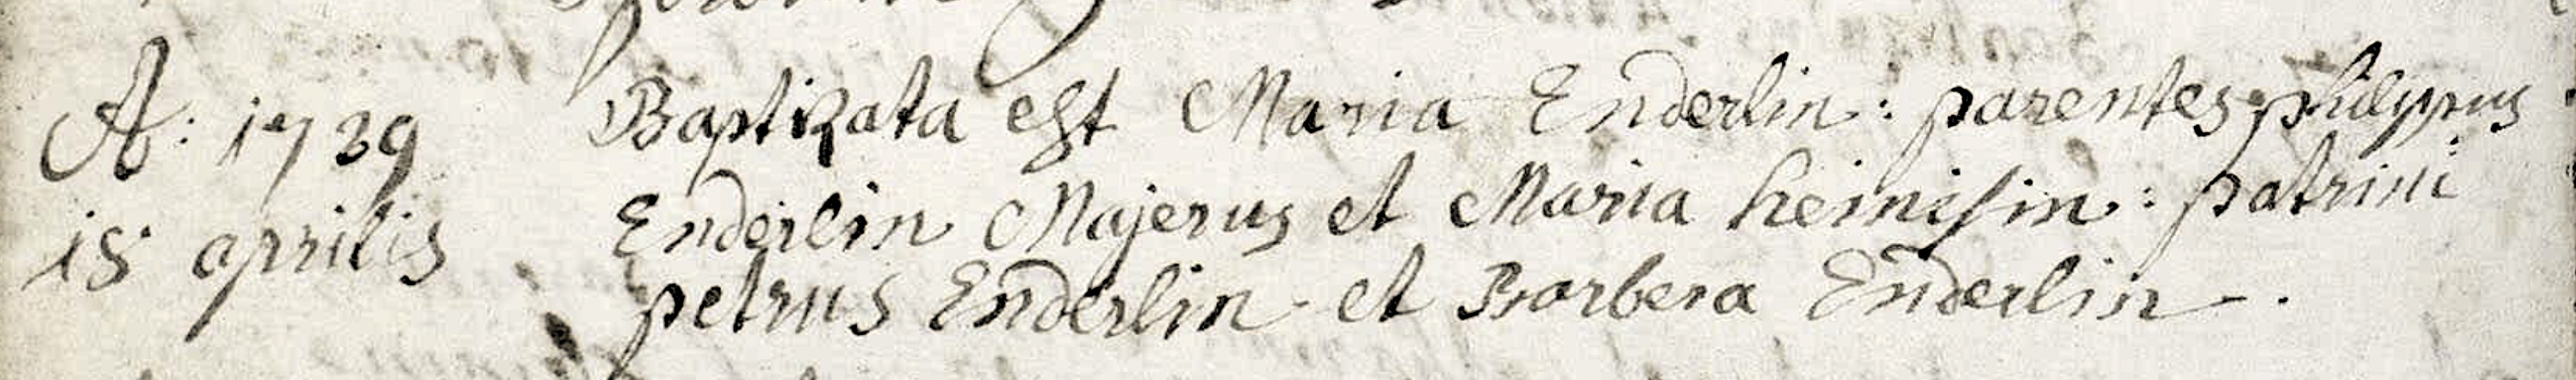 A: 1739 Baptizata est Maria Enderlin: parentes philyppus
15 aprilis Enderlin Majerus et Maria heinisin: patrini
petrus Enderlin et Barbera Enderlin.